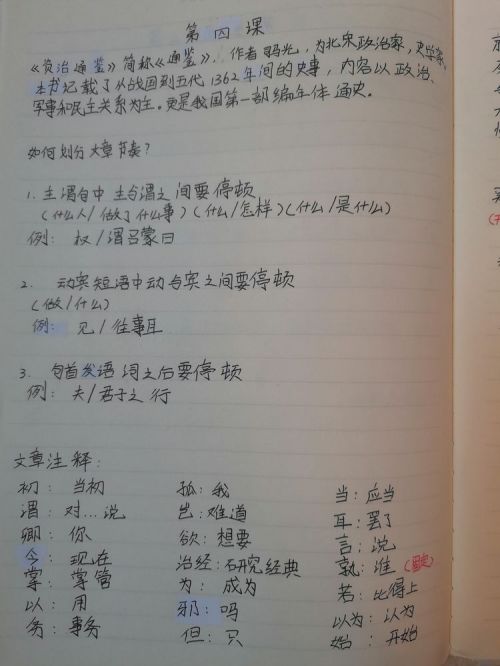 第四课
《资治通鉴》简称《通鉴》，作者司马光，为北宋政治家，史学家，
本书记载了从战国到五代1362年间的史事，内容以政治、
军事和民主关系为主。更是我国第一部编年体通史。
如何划分文章节奏？
1. 主谓句中 主与谓之间要停顿
（什么人/做了什么事）（什么/怎样）（什么/是什么）
例：权/谓吕蒙曰
2. 动宾短语中动与宾之间要停顿
（做/什么）
例：见/往事耳
3. 句首发语词之后要停顿
例：夫/君子之行
文章注释：
初：当初 孤：我 当：应当
谓：对…说 岂：难道 耳：罢了
卿：你 欲：想要 言：说
今：现在 治经：研究经典 孰：谁
掌：掌管 为：成为 若：比得上
以：用 邪：吗 以为：认为
务：事务 但：只 始：开始